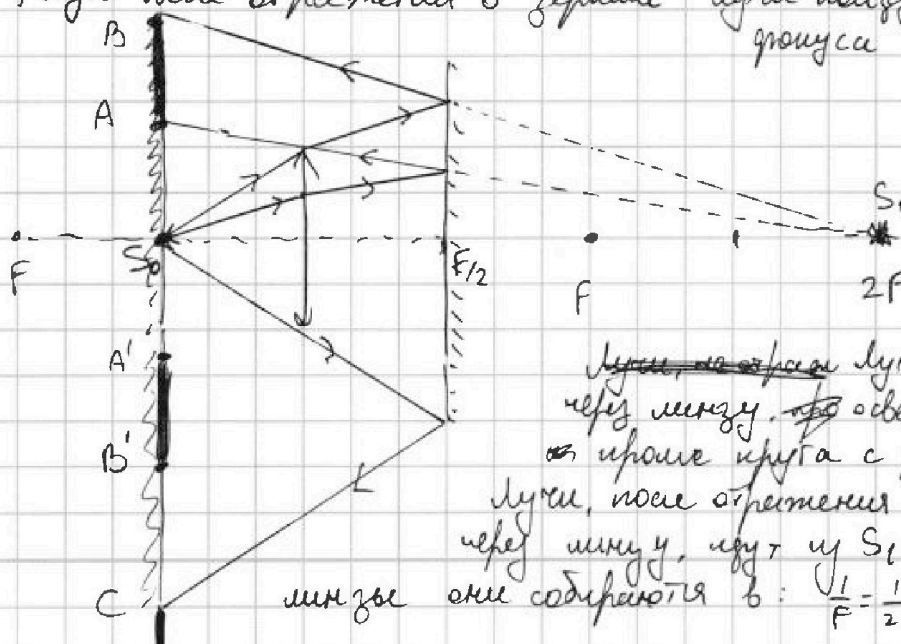 после отражения в зеркале лучи
фокуса
B
A
S₀
F
F/2
F
S₁
2F
A'
через линзу.
B'
кроме круга с
Лучи, после отражения
через линзу, идут из S₁
C
линзы они собираются в: 1/F = 1/2